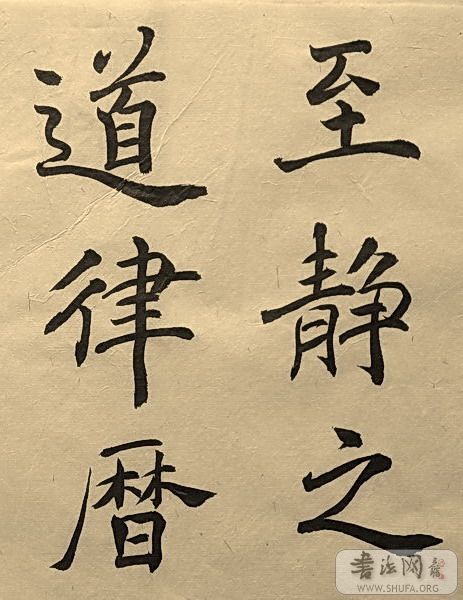 至静之
道律暦
書法网
WWW.SHUFA.ORG